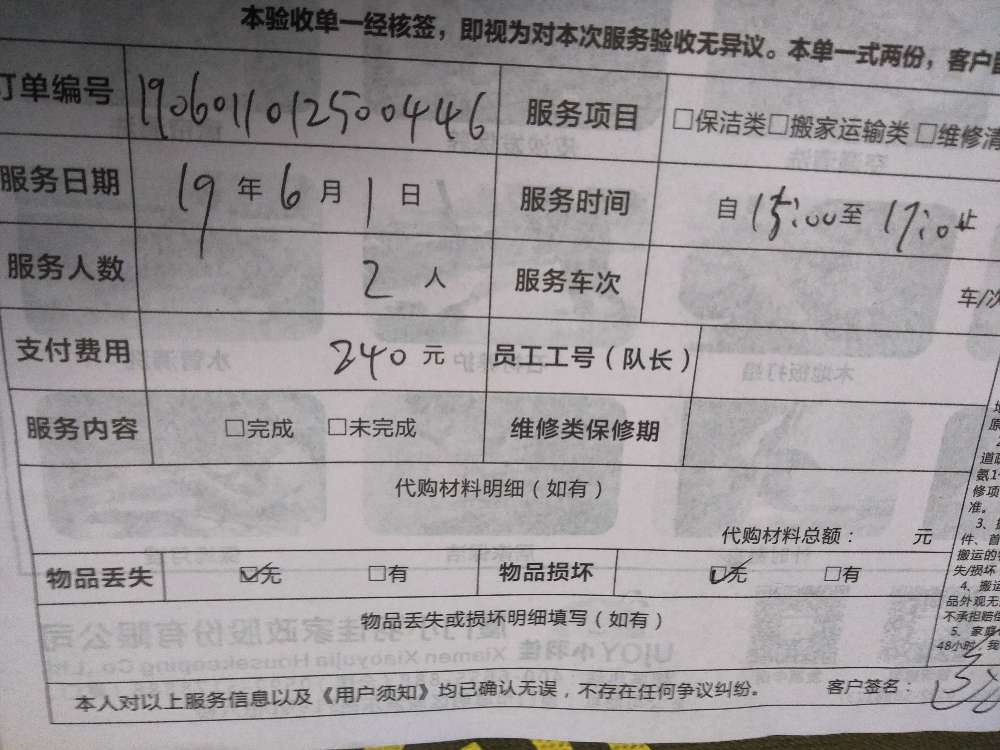 本验收单一经核签，即视为对本次服务验收无异议。本单一式两份，客户
订单编号 190601101250044​46 服务项目 □保洁类□搬家运输类 □维修清
服务日期 19年6月1日 服务时间 自15:00至17:0止
服务人数 2人 服务车次 车/次
支付费用 240元 员工工号（队长）
服务内容 □完成 □未完成 维修类保修期
代购材料明细（如有）
代购材料总额： 元
物品丢失 ☑无 □有 物品损坏 ☑无 □有
物品丢失或损坏明细填写（如有）
本人对以上服务信息以及《用户须知》均已确认无误，不存在任何争议纠纷。 客户签名：
道
氨1
修项
准。
3、
件、首
搬运的
失/损坏
4、搬运
品外观无
不承担赔偿
5、家庭
48小时，我